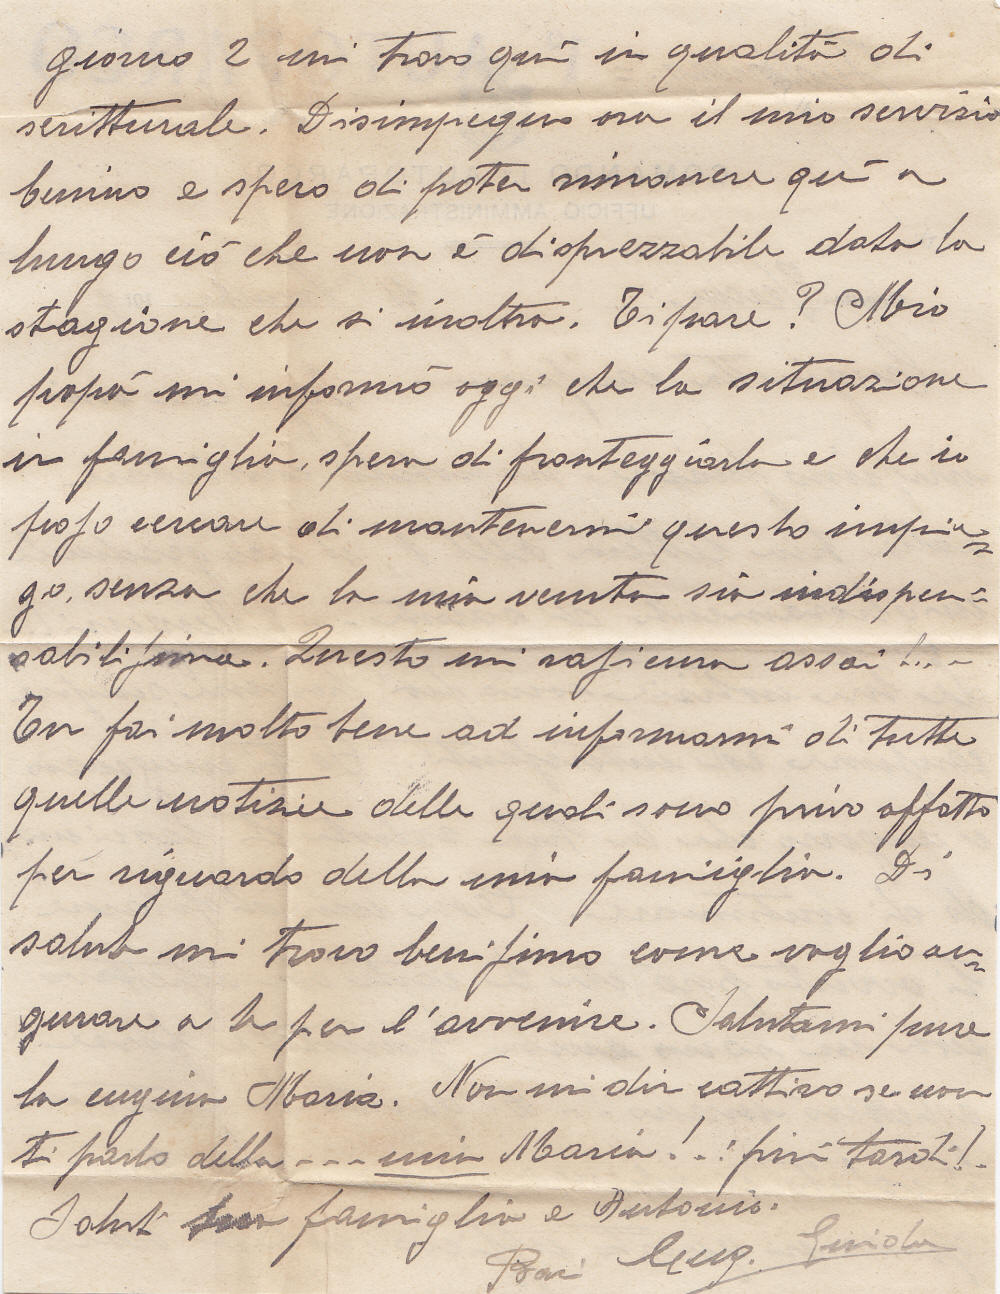 giorno 2 mi trovo quì in qualità di
scritturale. Disimpegno ora il mio servizio
benino e spero di poter rimanere quì a
lungo ciò che non è disprezzabile data la
stagione che si inoltra. Ti pare? Mio
papà mi informò oggi che la situazione
in famiglia, spera di fronteggiarla e che io
posso cercare di mantenermi questo impie=
go, senza che la mia venuta sia indispen=
sabilissima. Questo mi rassicura assai!..-
Tu fai molto bene ad informarmi di tutte
quelle notizie delle quali sono privo affatto
per riguardo della mia famiglia. Di
salute mi trovo benissimo come voglio au=
gurare a te per l'avvenire. Salutami pure
la cugina Maria. Non mi dir cattivo se non
ti parlo della --- mia Maria!..: più tardi!.
Saluti tua famiglia e Antonio.
Baci Cug. Guido
UFFICIO AMMINISTRAZIONE